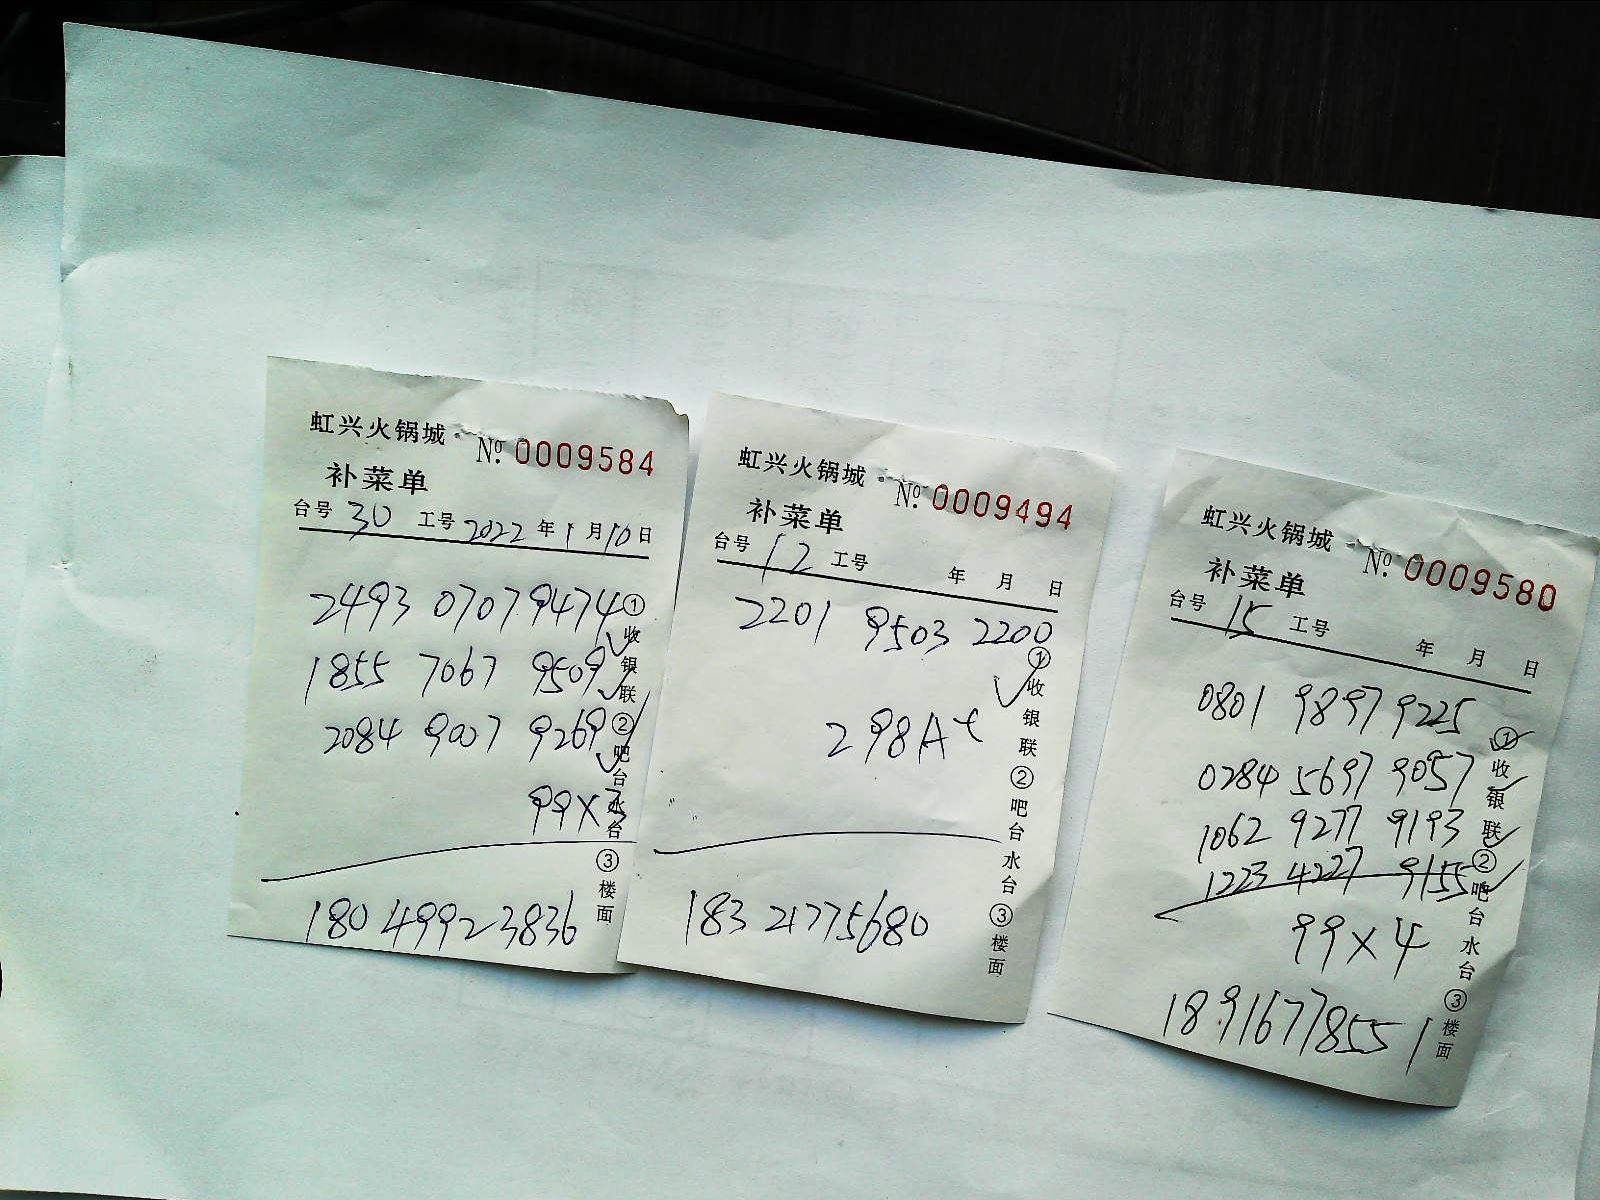 虹兴火锅城
No. 0009584
补菜单
台号 30 工号 2022 年 1 月 10 日
2493 0707 9474
1855 7067 9509
2084 9007 9269
99×3
180 49923836
①收银联②吧台水台③楼面
虹兴火锅城
No. 0009494
补菜单
台号 12 工号 年 月 日
2201 9503 2200
298A
183 21775680
①收银联②吧台水台③楼面
虹兴火锅城
No. 0009580
补菜单
台号 15 工号 年 月 日
0801 9897 9225
0284 5697 9057
1062 9277 9193
1223 4227 9155
99×4
18916778551
①收银联②吧台水台③楼面